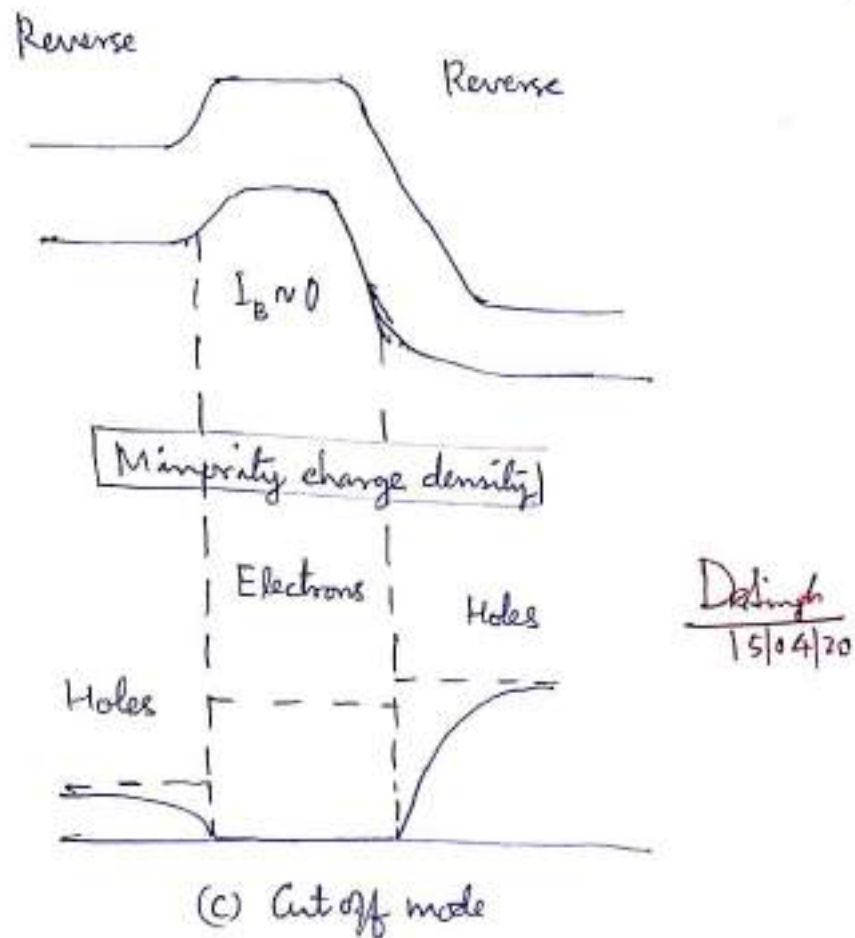 Reverse
Reverse
I_B ~ 0
Minority charge density
Electrons
Holes
Holes
15/04/20
(c) Cut off mode